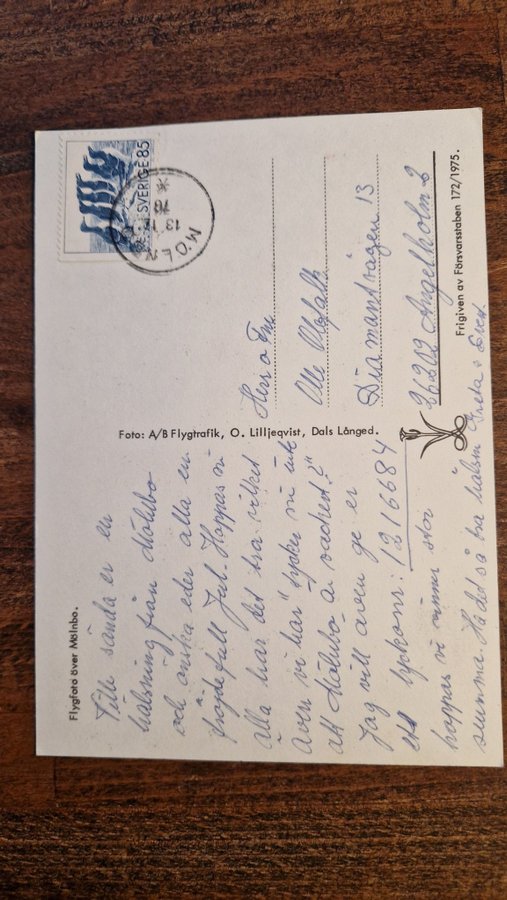 Flygfoto över Mölnbo.
Till sända er en
hälsning från Mölnbo
och önska eder alla en
fröjdefull Jul. Hoppas ni
alla har det bra vilket
även vi har" tycker ni inte
att Mölnbo är vackert?"
Jag vill även ge er
ett lyckonr: 1216684
hoppas vi vinner stor
summa. Ha det så bra hälsn Greta o Sven.
Foto: A/B Flygtrafik, O. Lilljeqvist, Dals Långed.
SVERIGE 85
MÖLN
13 12
78
Herr o Fru
Olle
Diamantvägen 13
26202 Ängelholm 2
Frigiven av Försvarsstaben 172/1975.